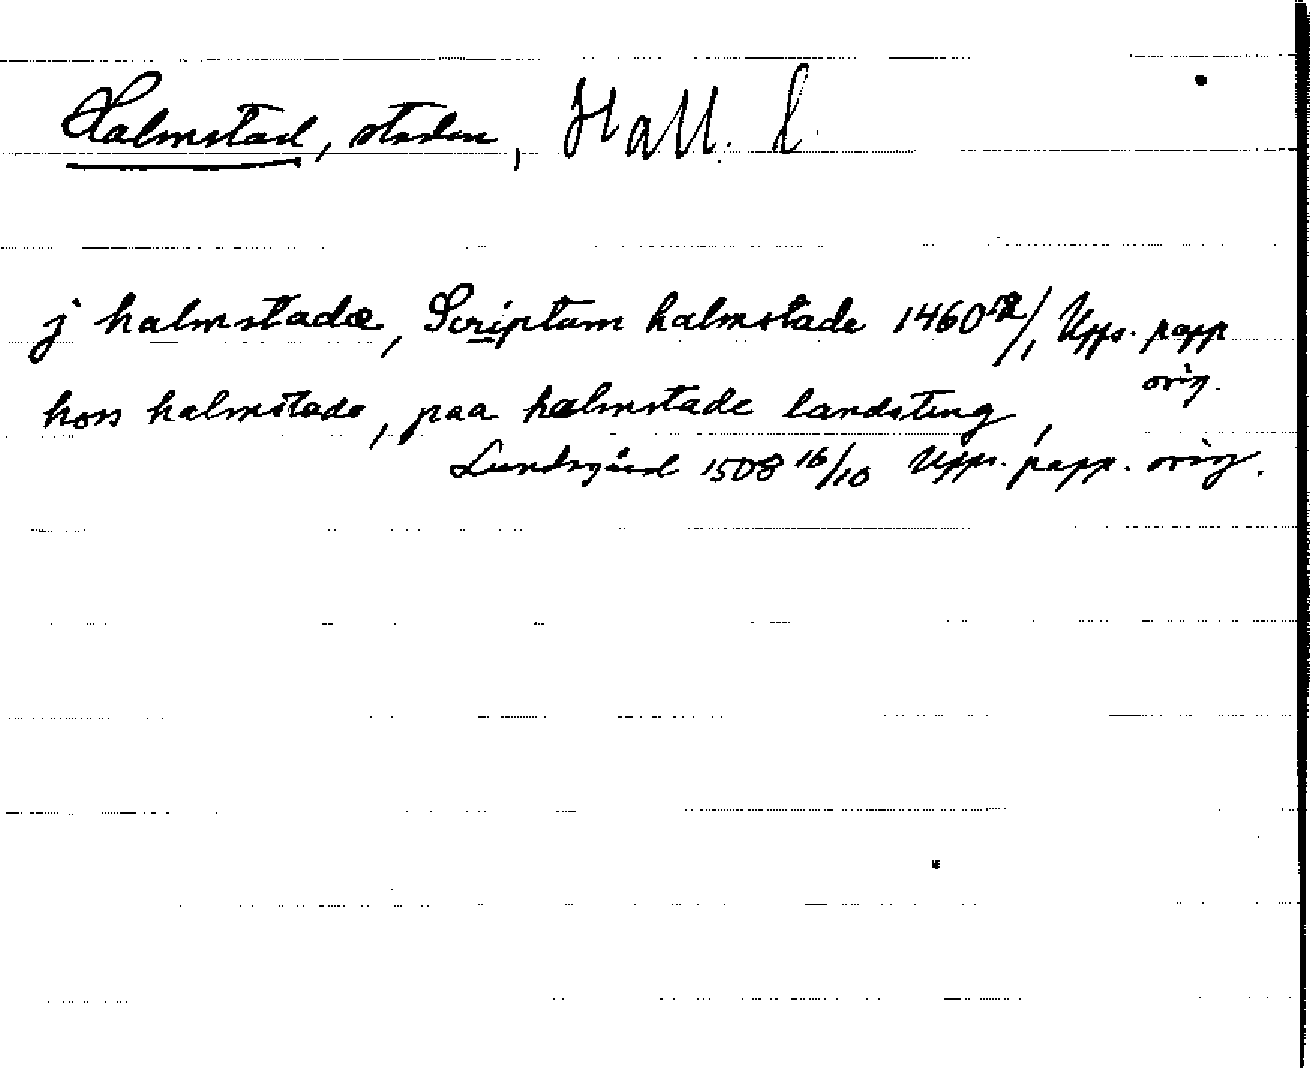 Halmstad, staden, Hall. l.
j halmstadæ, Scriptum halmstade 1460 /1 Upps. papp
orig.
hoss halmstade, paa halmstade landsting,
Lundsgård 1508 16/10 Upps. papp. orig.